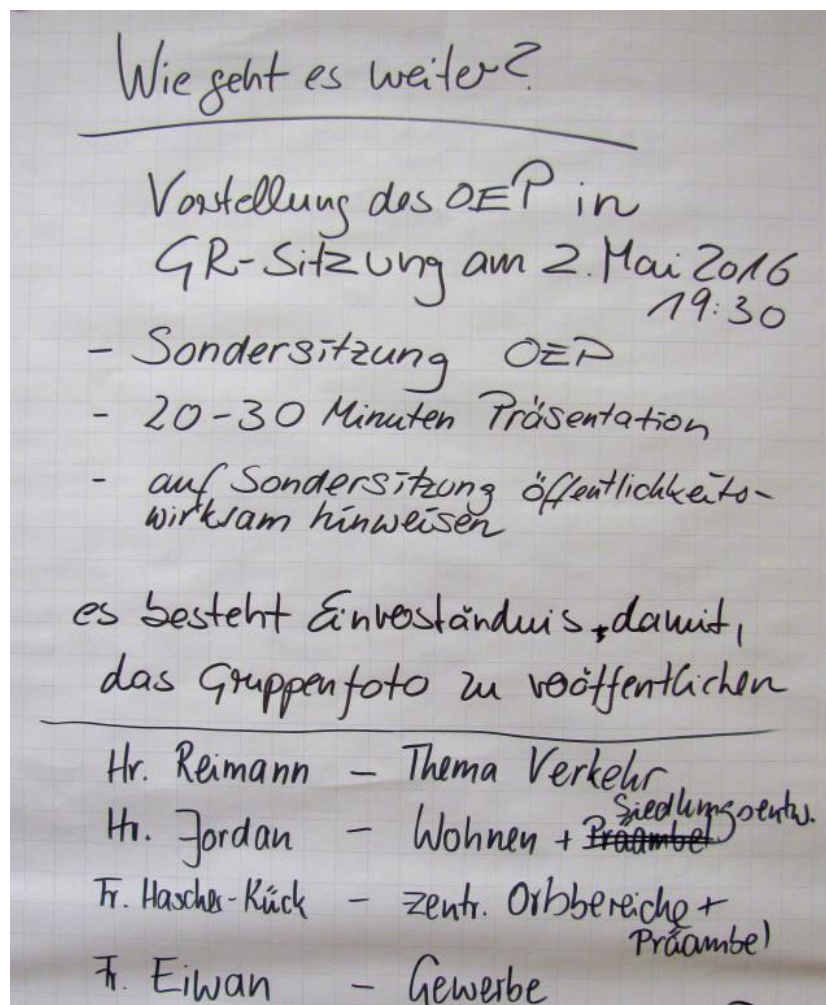 Wie geht es weiter?
Vorstellung des OEP in
GR-Sitzung am 2. Mai 2016
19:30
- Sondersitzung OEP
- 20-30 Minuten Präsentation
- auf Sondersitzung öffentlichkeits-
wirksam hinweisen
es besteht Einverständnis, damit,
das Gruppenfoto zu veröffentlichen
Hr. Reimann - Thema Verkehr
Siedlungsentw.
Hr. Jordan - Wohnen + Präambel
Fr. Hascher-Kück - zentr. Ortsbereiche +
Präambel
Fr. Eiwan - Gewerbe